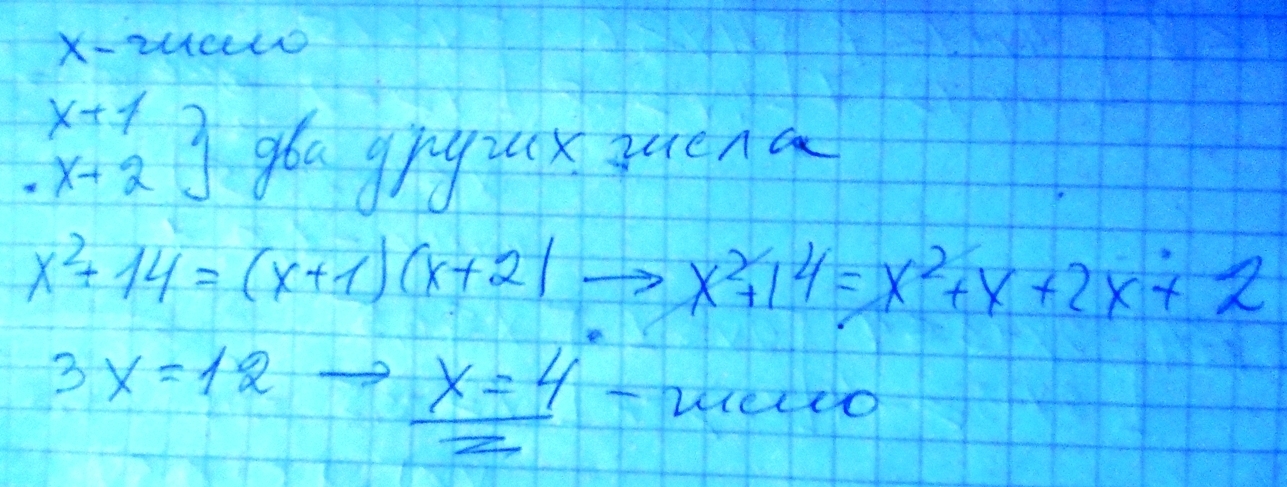 x - число
x+1
x+2 } два других числа
x²+14=(x+1)(x+2) → x²+14=x²+x+2x+2
3x=12 → x=4 - число